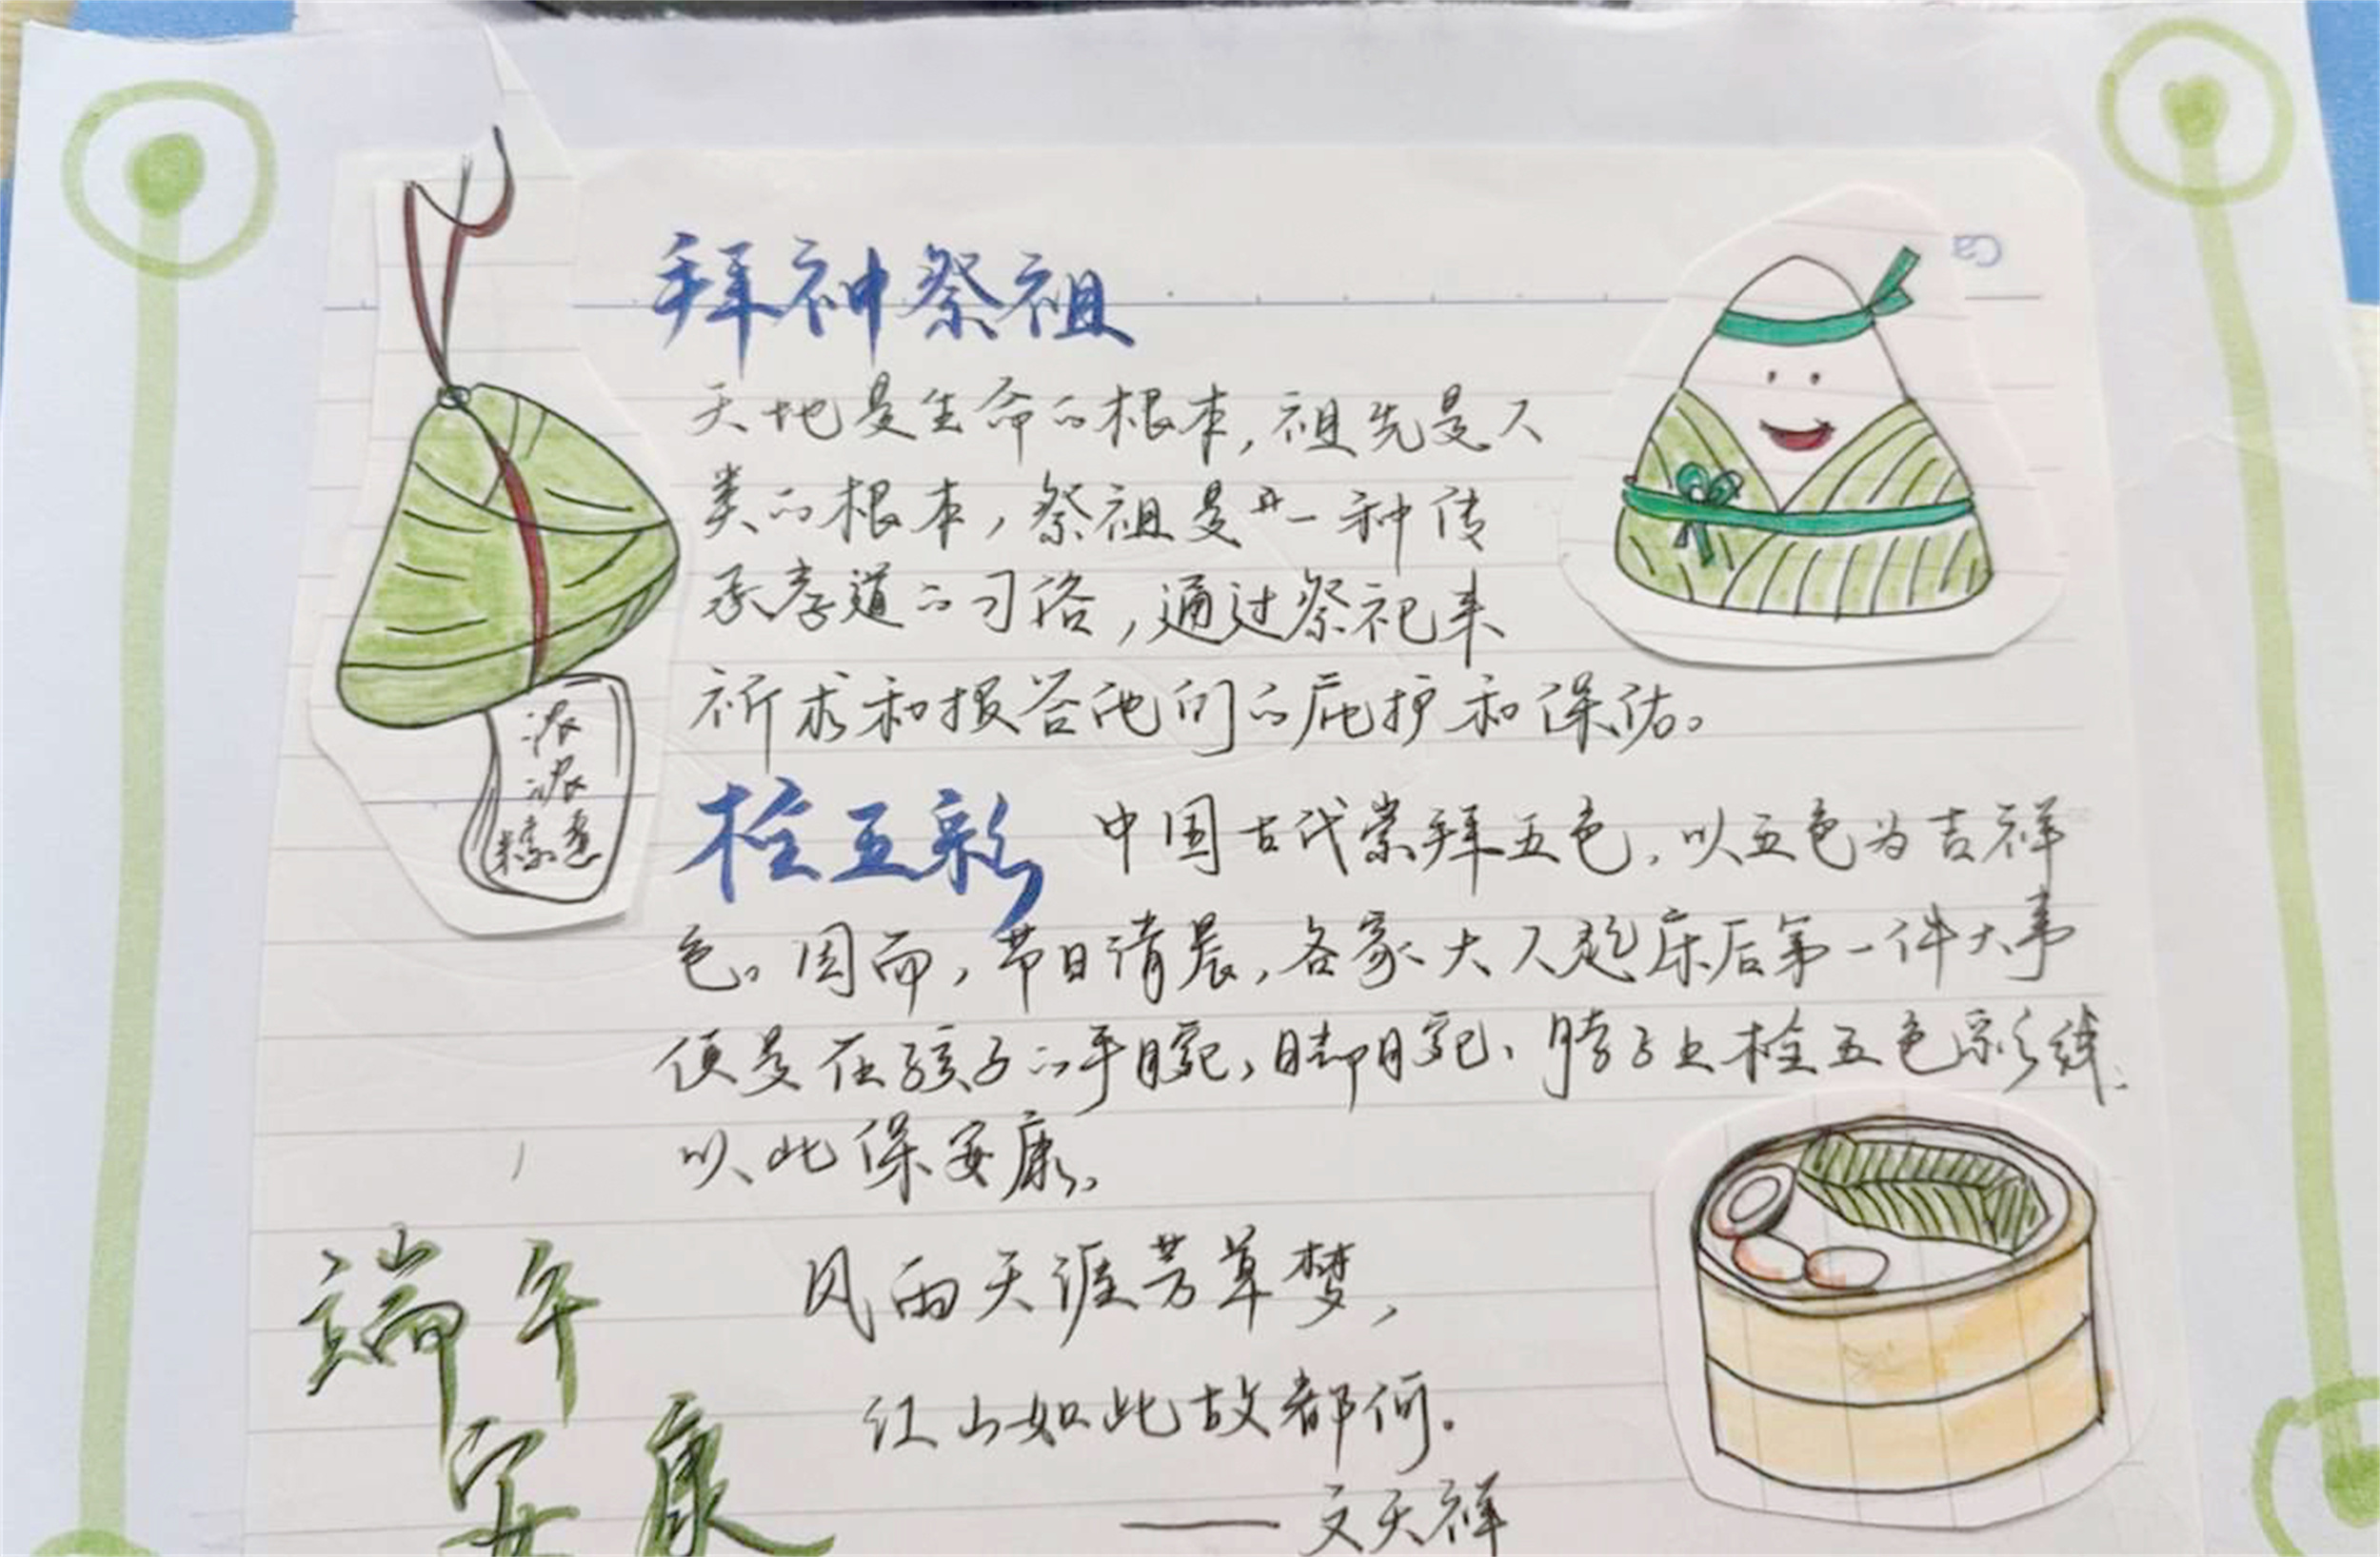 拜神祭祖
天地是生命的根本,祖先是人
类的根本,祭祖是一种传
承孝道的习俗,通过祭祀来
祈求和报答他们的庇护和保佑。
浓
浓
粽意
栓五彩 中国古代崇拜五色,以五色为吉祥
色。因而,节日清晨,各家大人起床后第一件大事
便是在孩子的手腕,脚腕、脖子上栓五色彩线、
以此保安康。
风雨天涯芳草梦,
江山如此故都何.
——文天祥
端午
安康